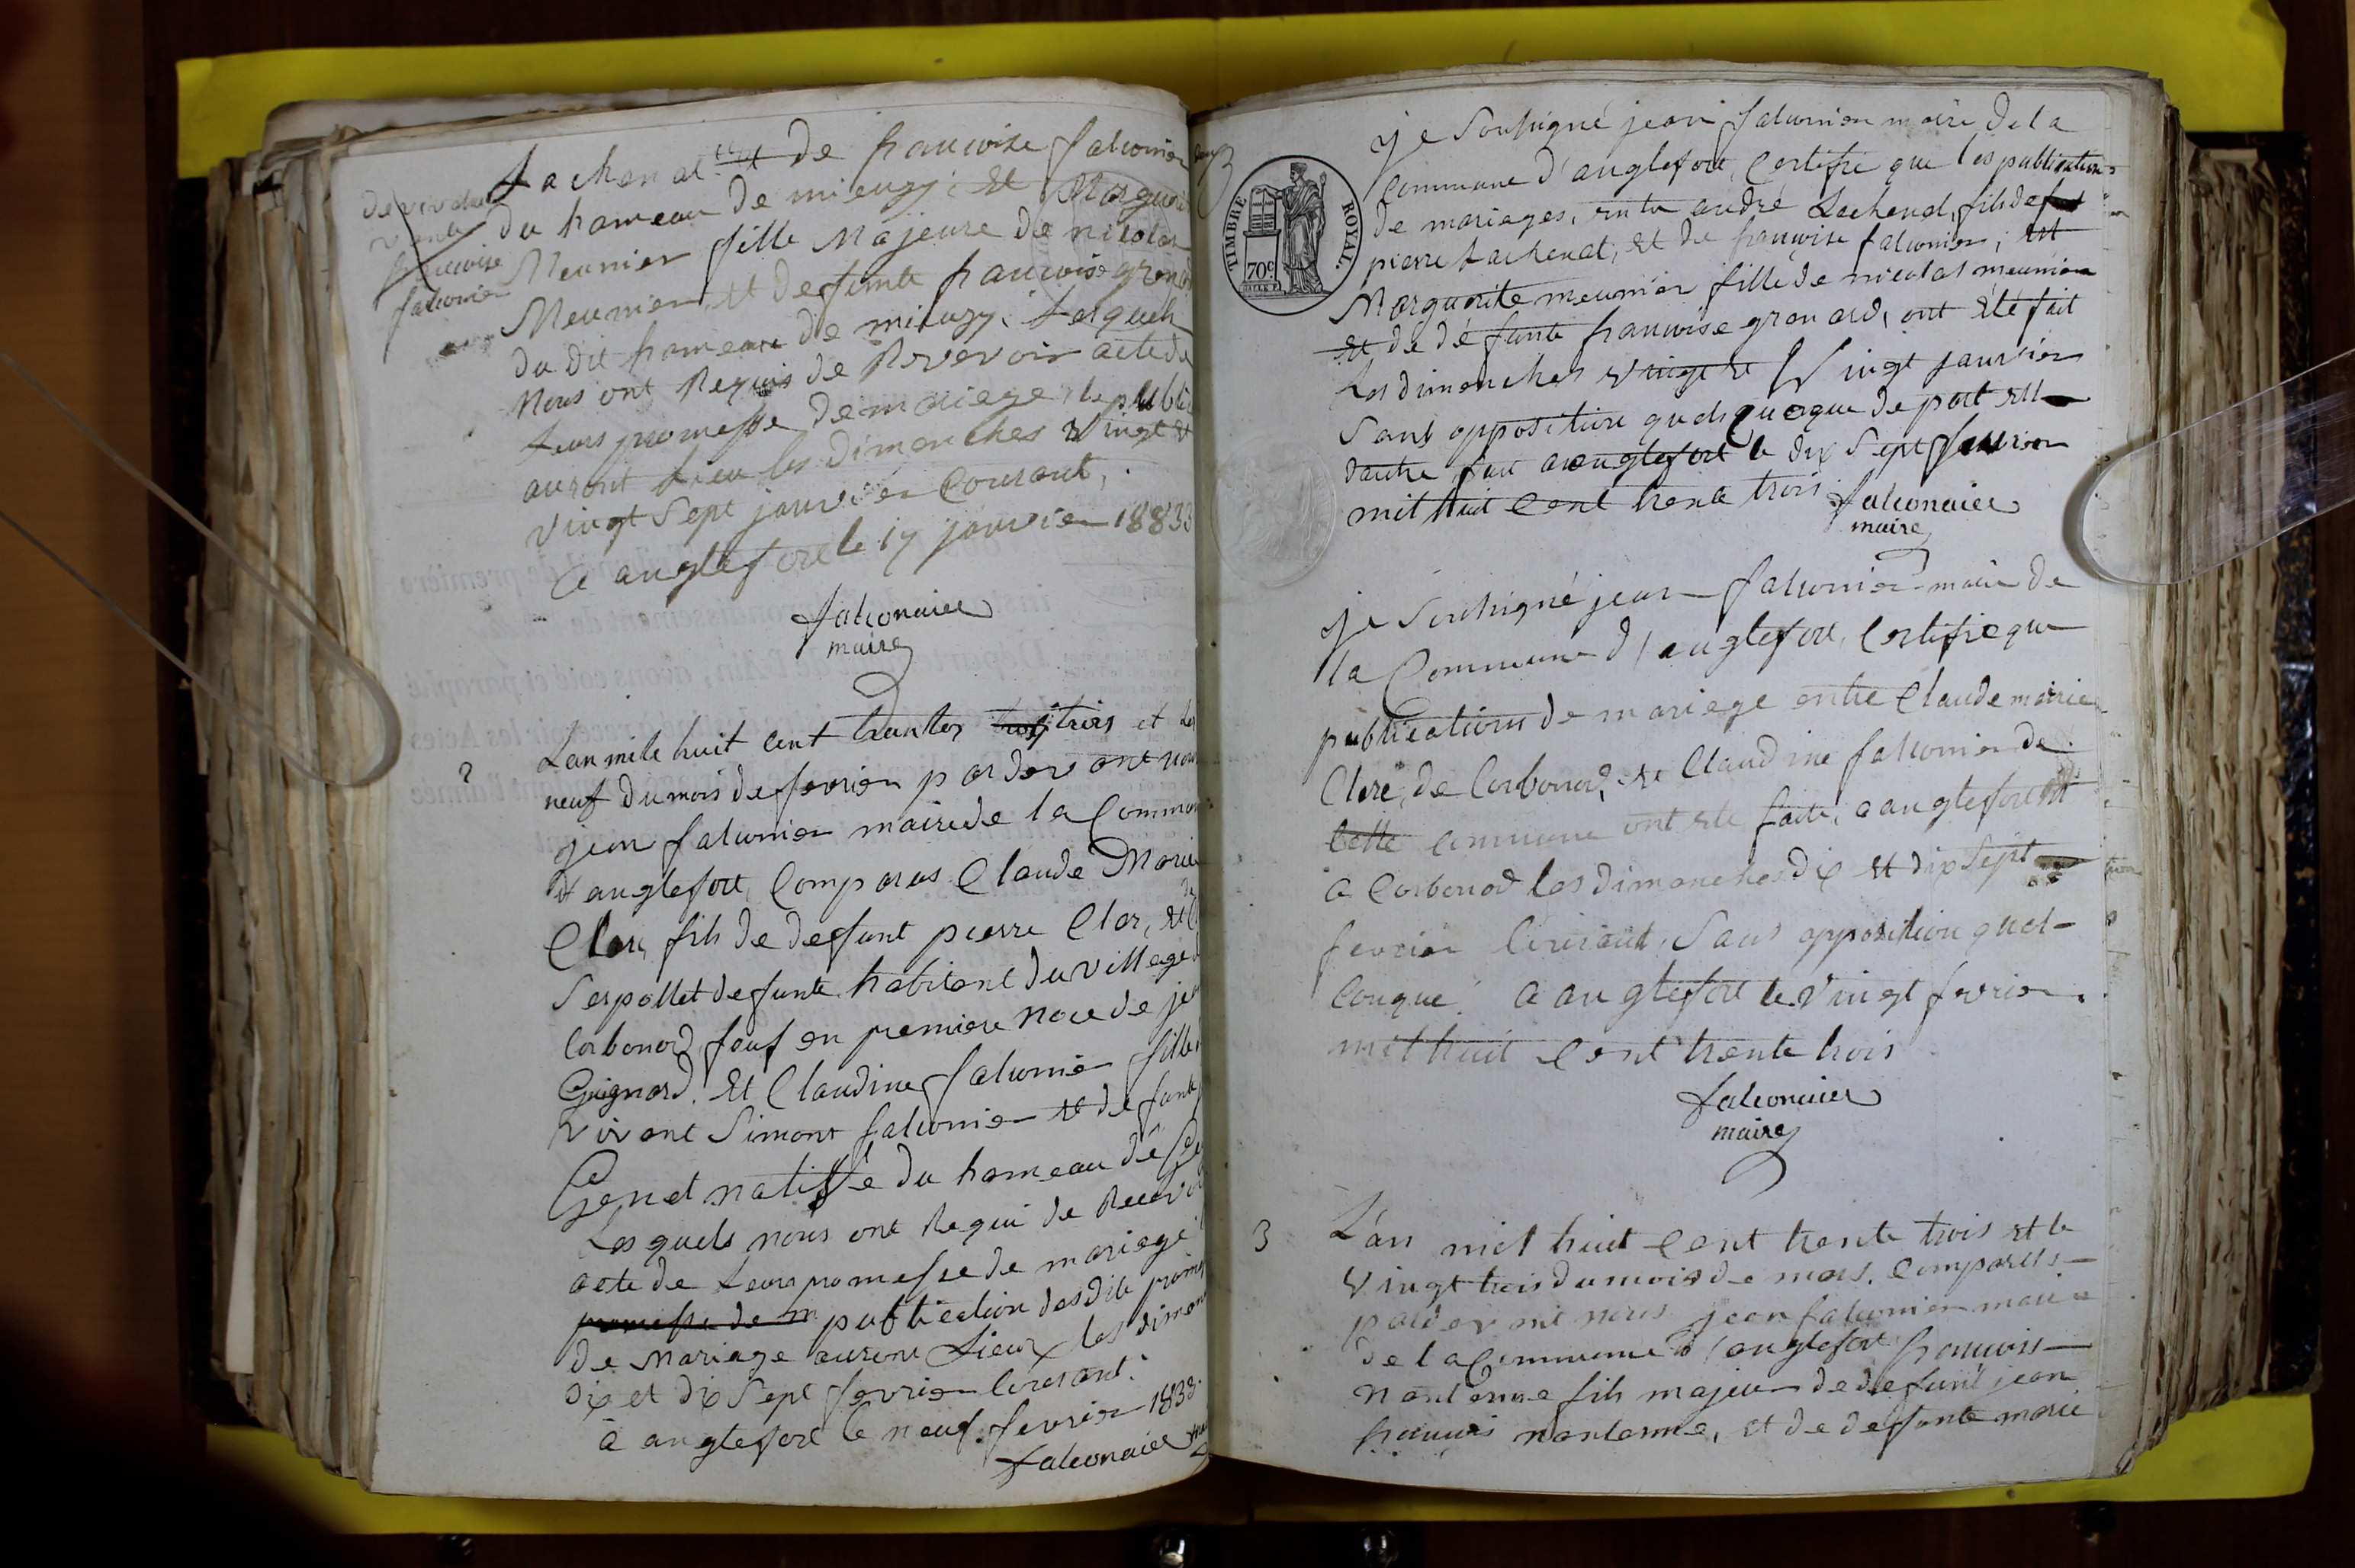 Lachenal et de francoise falconier
de vivante
vivante
francoise
falconier
du hameau de mieugy. et Margueri
Meunier fille Majeure de nicolas
Meunier, et defunte francoise gronard
du dit hameau de mieugy. Lesquels
Nous ont Requis de Recevoir acte de
Leurs promesse de mariage, le public
auront Lieu les dimenches Vingt et
vingt Sept janvier Courant,
a anglefort le 17 janvier 18833
falconnier
maire
2
Lan mile huit cent trantes trois et le
neuf du mois de fevrier par devant nous
jean falconier maire de la Commun
d'anglefort, Comparus Claude Marie
Clerc, fils de defunt pierre Clar, et de
Serpollet defunte habitant du village d
Corbonod, feuf en premiere noce de jea
Guignard. Et Claudine falconier fille
vivant Simont falconier et defunte
Genet native du hameau de
Lesquels nous ont Requi de Recevoi
acte de Leurs promesse de mariage
promesse de m publication desdite prome
de Mariage auront Lieux les dimenc
dix et dix Sept fevrier Courant.
à anglefort le neuf. fevrier 1833.
falconnier
TIMBRE ROYAL.
70c
je Soussigné jean falconier maire de la
Commune d'anglefort, Certifie que les publications
de mariages, entre andré Lachenal, fils de
pierre Lachenal, et de françoise falconier, et
Marguerite meunier fille de nicolas meunier
et de défunte francoise gronard, ont été fait
Les dimenches vingt et Vingt janvier
Sans opposition quelsquoque de part et
dautre, fait a anglefort le dix Sept fevrier
mil huit Cent trente trois.
falconnier
maire
je Soussigné jean falconier maire de
la Commune d'anglefort, Certifie que
publications de mariage entre Claude marie
Clerc, de Corbonod, et Claudine falconier de
Cette Commune ont ete faite, a anglefort et
a Corbonod les dimenches dix et dix Sept
fevrier Courant, Sans opposition quel-
Conque. a anglefort le Vingt fevrier.
mil huit Cent trente trois
falconnier
maire
3
L'an mil huit Cent trente trois et le
vingt trois du mois de mars. Comparus
pardevent nous jean falconier maire
de la Commune d'anglefort francois
nanterme fils majeur de defunt jean
francois nanterme, et de defunte marie